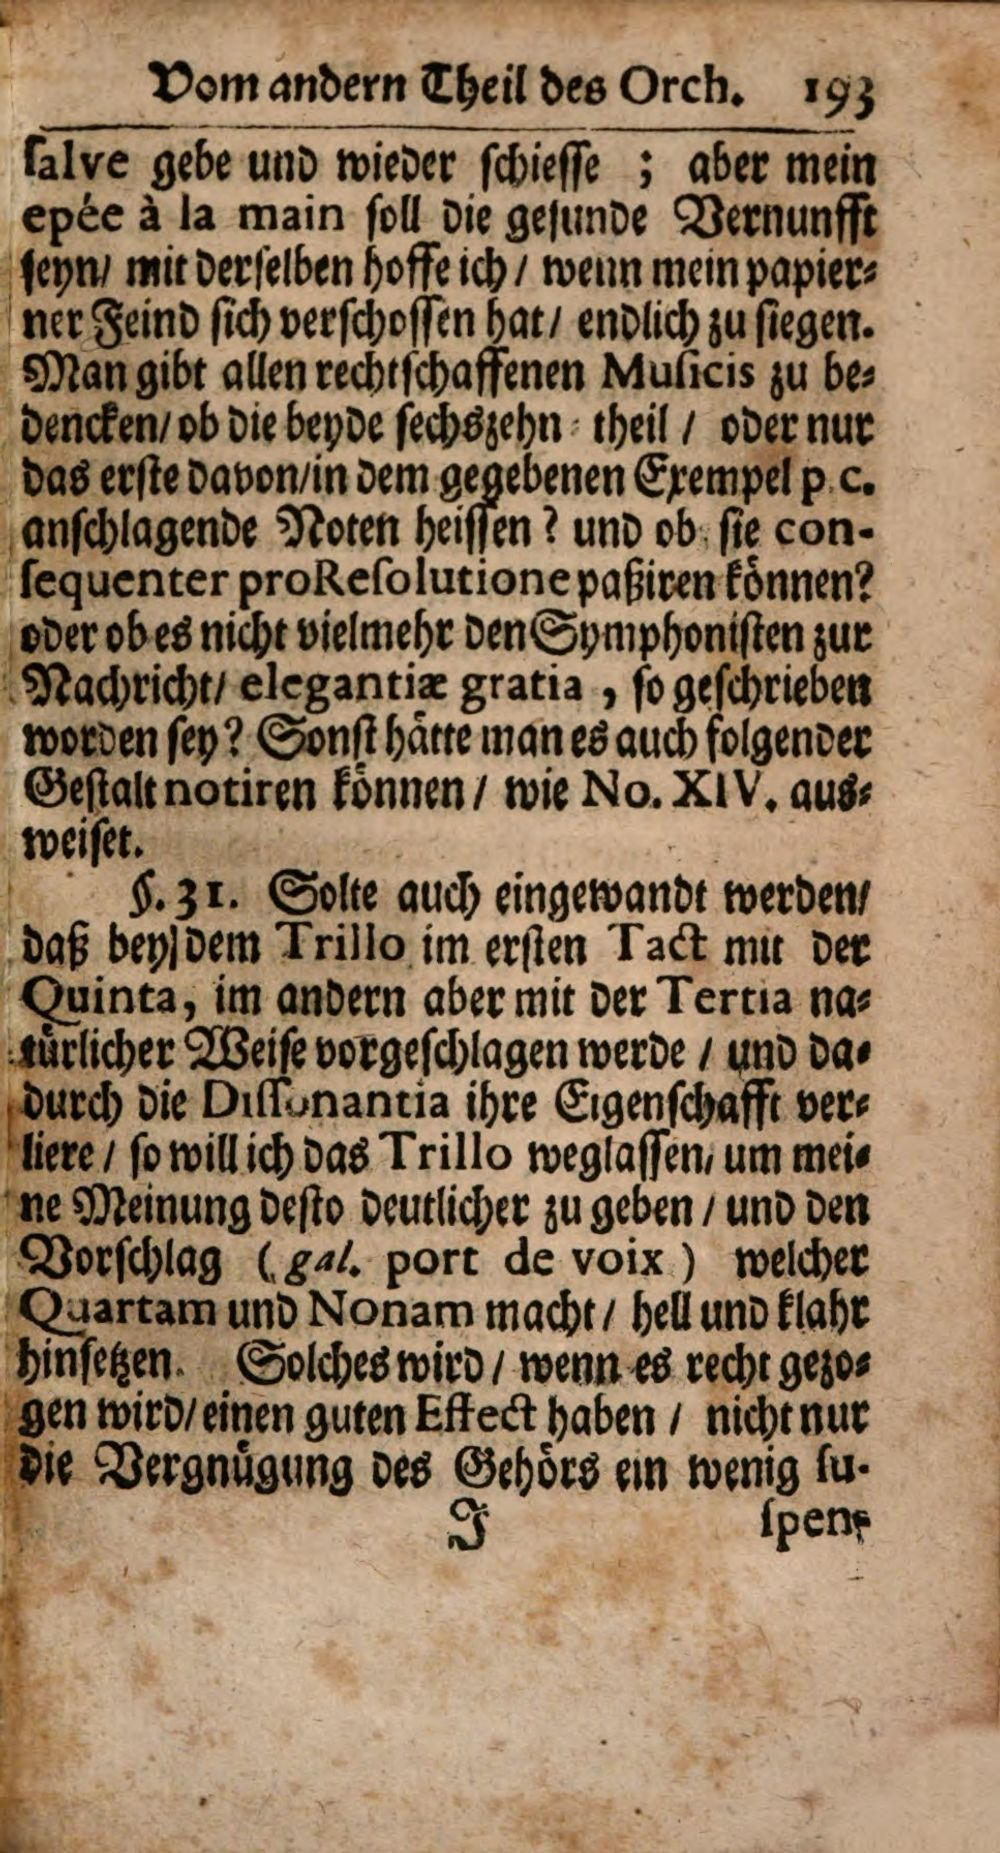 Vom andern Theil des Orch. 193
ſalve gebe und wieder ſchieſſe ; aber mein
epée à la main ſoll die geſunde Vernunfft
ſeyn/ mit derſelben hoffe ich / wenn mein papier⸗
ner Feind ſich verſchoſſen hat / endlich zu ſiegen.
Man gibt allen rechtſchaffenen Muſicis zu be⸗
dencken/ ob die beyde ſechszehn⸗theil / oder nur
das erſte davon/in dem gegebenen Exempel p. c.
anſchlagende Noten heiſſen? und ob ſie con-
ſequenter pro Reſolutione paßiren können?
oder ob es nicht vielmehr den Symphoniſten zur
Nachricht/ elegantiæ gratia, ſo geſchrieben
worden ſey? Sonſt hätte man es auch folgender
Geſtalt notiren können / wie No. XIV. aus⸗
weiſet.
§. 31. Solte auch eingewandt werden/
daß bey dem Trillo im erſten Tact mit der
Quinta, im andern aber mit der Tertia na⸗
türlicher Weiſe vorgeſchlagen werde / und da⸗
durch die Diſſonantia ihre Eigenſchafft ver⸗
liere / ſo will ich das Trillo weglaſſen, um mei⸗
ne Meinung deſto deutlicher zu geben / und den
Vorſchlag (gal. port de voix) welcher
Quartam und Nonam macht / hell und klahr
hinſetzen. Solches wird / wenn es recht gezo⸗
gen wird/ einen guten Effect haben / nicht nur
die Vergnügung des Gehörs ein wenig ſu-
J ſpen⸗